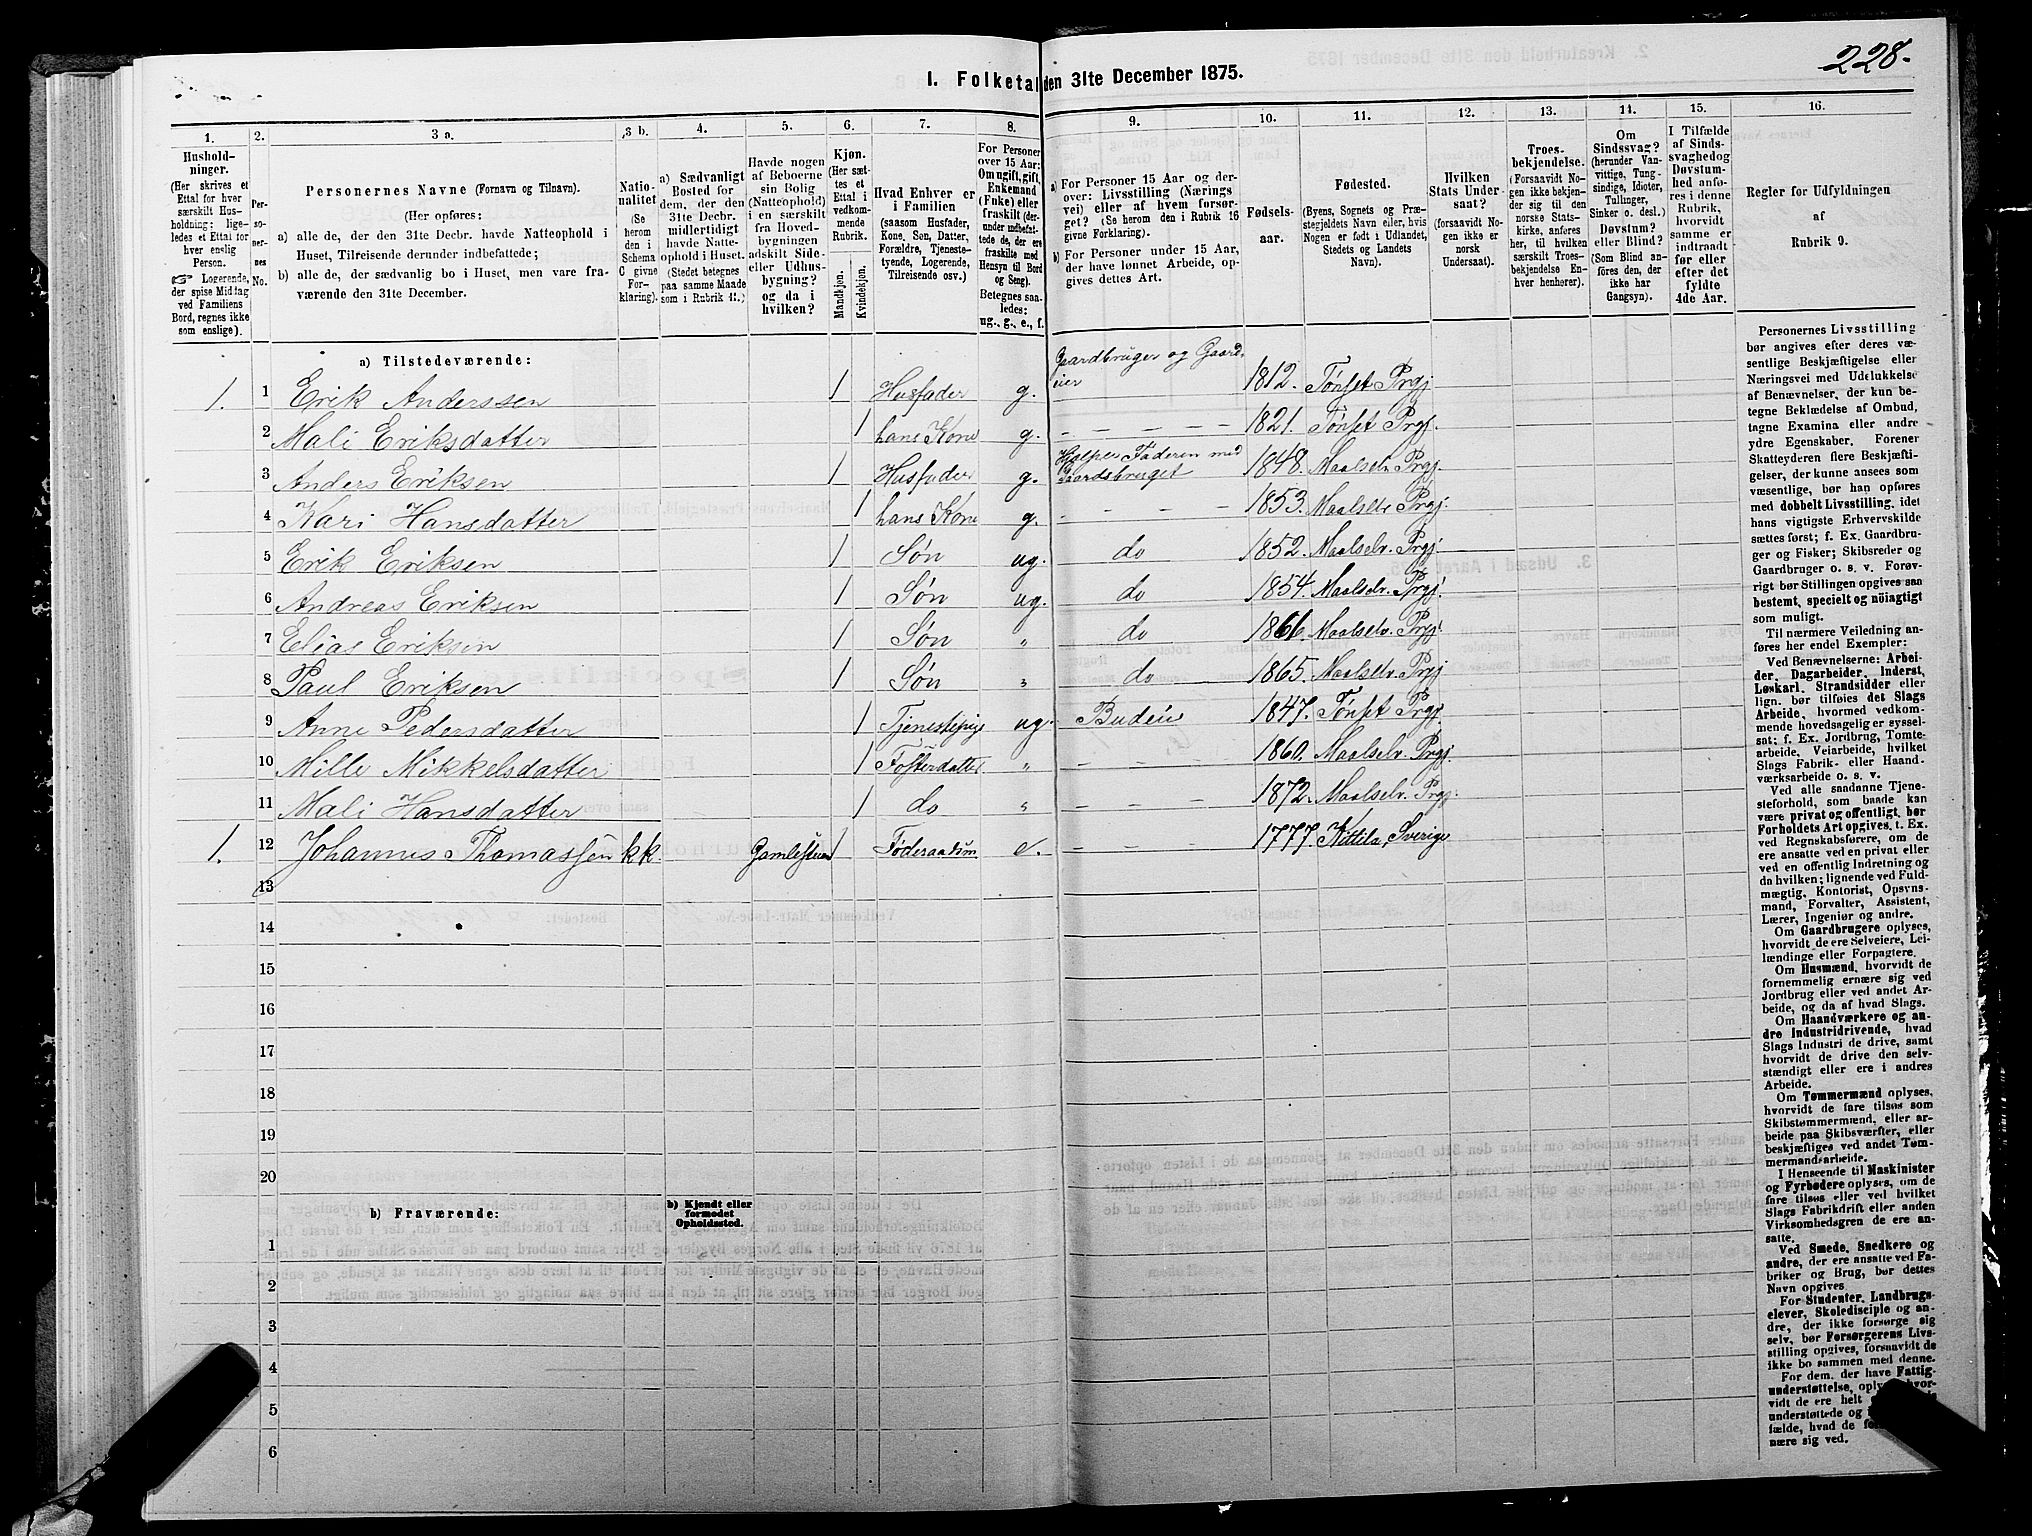 228.
I. Folketal den 31te December 1875.
1. 2. 3 a. 3 b. 4. 5. 6. 7. 8. 9. 10. 11. 12. 13. 14. 15. 16.
Hushold-
ninger.
(Her skrives et
Ettal for hver
særskilt Hus-
holdning; lige-
ledes et Ettal for
hver enslig
Person.
☞ Logerende,
der spise Middag
ved Familiens
Bord, regnes ikke
som enslige).
Per-
so-
ner-
nes
No.
Personernes Navne (Fornavn og Tilnavn).
(Her opføres:
a) alle de, der den 31te Decbr. havde Natteophold i
Huset, Tilreisende derunder indbefattede;
b) alle de, der sædvanlig bo i Huset, men vare fra-
værende den 31te December.
Natio-
nalitet
(Se
herom
den i
Schema
C givne
For-
klaring).
a) Sædvanligt
Bosted for
dem, der den
31te Decbr.
midlertidigt
havde Natte-
ophold i Huset.
(Stedet betegnes
paa samme Maade
som i Rubrik 11.)
Havde nogen
af Beboerne
sin Bolig
(Natteophold)
i en særskilt
fra Hoved-
bygningen
adskilt Side-
eller Udhus-
bygning?
og da i
hvilken?
Kjøn.
(Her sæt-
tes et
Ettal i
vedkom-
mende
Rubrik.
Mandkjøn.
Kvindekjøn.
Hvad Enhver er
i Familien
(saasom Husfader,
Kone, Søn, Datter,
Forældre, Tjeneste-
tyende, Logerende,
Tilreisende osv.)
For Personer
over 15 Aar:
Om ugift, gift,
Enkemand
(Enke) eller
fraskilt (der-
under indbefat-
tede de, der ere
fraskilte med
Hensyn til Bord
og Seng).
Betegnes saa-
ledes:
ug., g., e., f.
a) For Personer 15 Aar og der-
over: Livsstilling (Nærings
vei) eller af hvem forsør-
get? (Se herom den i Rubrik 16
givne Forklaring).
b) For Personer under 15 Aar,
der have lønnet Arbeide, op-
gives dettes Art.
Fødsels-
aar.
Fødested.
(Byens, Sognets og Præ-
stegjeldets Navn eller, hvis
Nogen er født i Udlandet,
Stedets og Landets
Navn).
Hvilken
Stats Under-
saat?
(forsaavidt No-
gen ikke er
norsk
Undersaat).
Troes-
bekjendelse.
(Forsaavidt No-
gen ikke bekjen-
der sig til den
norske Stats-
kirke, anføres
her, til hvilken
særskilt Troes-
bekjendelse En-
hver henhører).
Om
Sindssvag?
(herunder Van-
vittige, Tung-
sindige, Idioter,
Tullinger,
Sinker o. desl.)
Døvstum?
eller Blind?
(Som Blind an-
føres den, der
ikke har
Gangsyn).
I Tilfælde
af Sinds-
svaghed og
Døvstum-
hed anfø-
res i denne
Rubrik,
hvorvidt
samme er
indtraadt
før eller
efter det
fyldte
4de Aar.
Regler for Udfyldningen
af
Rubrik 9.
a) Tilstedeværende:
1. 1 Erik Anderssen 1 Husfader g. Gaardbruger og Gaard- eier 1812. Tønset Prgj
2 Mali Eriksdatter 1 hans Kone g. - - - - - 1821. Tønset Prgj.
3 Anders Eriksen 1 Husfader g. Hjælper Faderen med Gaardsbruget 1848. Maalselv Prgj.
4 Kari Hansdatter 1 hans Kone g. - - - - - 1853. Maalselv Prgj.
5 Erik Eriksen 1 Søn ug. do 1852. Maalselv. Prgj.
6 Andreas Eriksen 1 Søn ug. do 1854. Maalselv. Prgj.
7 Elias Eriksen 1 Søn " do 1861. Maalselv. Prgj.
8 Paul Eriksen 1 Søn " do 1865. Maalselv. Prgj
9 Anne Pedersdatter 1 Tjenestepige ug. Budeie 1847. Tønset Prgj.
10 Mille Mikkelsdatter 1 Fosterdatter " - - - - 1860. Maalselv. Prgj.
11 Mali Hansdatter 1 do " - - - 1872. Maalselv. Prgj.
1. 12 Johannes Thomassen kk. Gamlestuen 1 Føderaadsm. e. 1777. Kittila, Sverige
13
14
15
16
17
18
19
20
b) Fraværende:
b) Kjendt eller
formodet
Opholdssted.
1
2
3
4
5
6
Personernes Livsstilling
bør angives efter deres væ-
sentlige Beskjæftigelse eller
Næringsvei med Udelukkelse
af Benævnelser, der kun be-
tegne Beklædelse af Ombud,
tagne Examina eller andre
ydre Egenskaber. Forener
Skatteyderen flere Beskjæfti-
gelser, der kunne ansees som
væsentlige, bør han opføres
med dobbelt Livsstilling, idet
hans vigtigste Erhvervskilde
sættes først; f. Ex. Gaardbru-
ger og Fisker; Skibsreder og
Gaardbruger o. s. v. Forøv-
rigt bør Stillingen opgives saa
bestemt, specielt og nöiagtigt
som muligt.
Til nærmere Veiledning an-
føres her endel Exempler:
Ved Benævnelserne: Arbei-
der, Dagarbeider, Inderst,
Løskarl, Strandsidder eller
lign. bør tilføies det Slags
Arbeide, hvormed vedkom-
mende hovedsagelig er syssel-
sat; f. Ex. Jordbrug, Tomte-
arbeide, Veiarbeide, hvilket
Slags Fabrik- eller Haand-
værksarbeide o. s. v.
Ved alle saadanne Tjene-
steforhold, som baade kan
være privat og offentligt, bør
Forholdets Art opgives, t. Ex.
ved Regnskabsførere, om de
ere ansatte ved en privat eller
ved en offentlig Indretning og
da hvilken; lignende ved Fuld-
mægtig, Kontorist, Opsyns-
mand, Forvalter, Assistent,
Lærer, Ingeniør og andre.
Om Gaardbrugere oplyses,
hvorvidt de ere Selveiere, Lei-
lændinge eller Forpagtere.
Om Husmænd, hvorvidt de
fornemmelig ernære sig ved
Jordbrug eller ved andet Ar-
beide, og da af hvad Slags.
Om Haandværkere og an-
dre Industridrivende, hvad
Slags Industri de drive, samt
hvorvidt de drive den selv-
stændigt eller ere i andres
Arbeide.
Om Tømmermænd oplyses,
hvorvidt de fare tilsøs som
Skibstømmermænd, eller ar-
beide paa Skibsværfter, eller
beskjæftiges ved andet Tøm-
mermandsarbeide.
I Henseende til Maskinister
og Fyrbødere oplyses, om de
fare tilsøs eller ved hvilket
Slags Fabrikdrift eller anden
Virksomhedsgren de ere an-
satte.
Ved Smede, Snedkere og
andre, der ere ansatte ved Fa-
briker og Brug, bør dettes
Navn opgives.
For Studenter, Landbrugs-
elever, Skoledisciple og an-
dre, der ikke forsørge sig
selv, bør Forsørgerens Livs-
stilling opgives, forsaavidt de
ikke bo sammen med denne.
For dem, der have Fattig-
understøttelse, oplyses hvor-
vidt de ere helt
understøttede og
fælde, hvad de
nære sig ved.